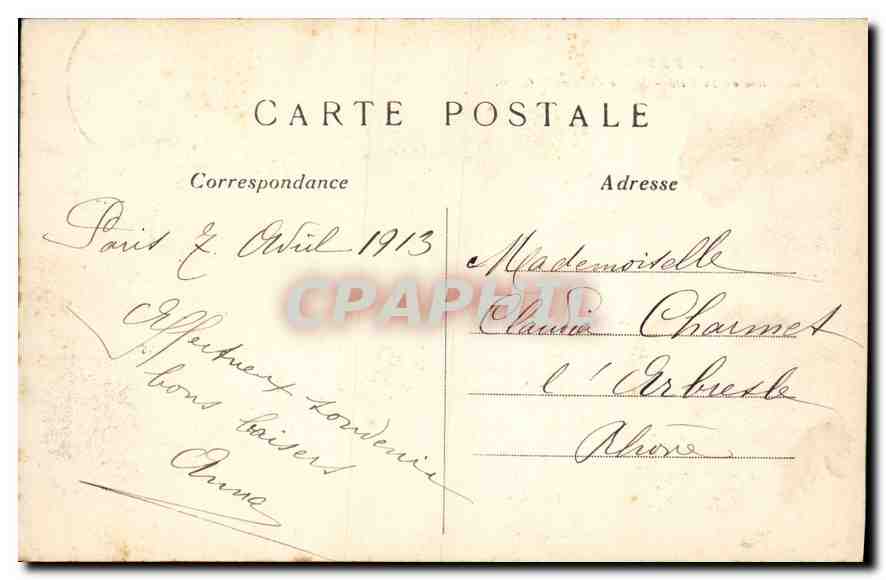 CARTE POSTALE
Correspondance
Adresse
Paris 7 Avril 1913
Affectueux souvenir
bons baisers
Anna
Mademoiselle
Claudia Charmet
l'Arbresle
Rhône
CPAPHIL